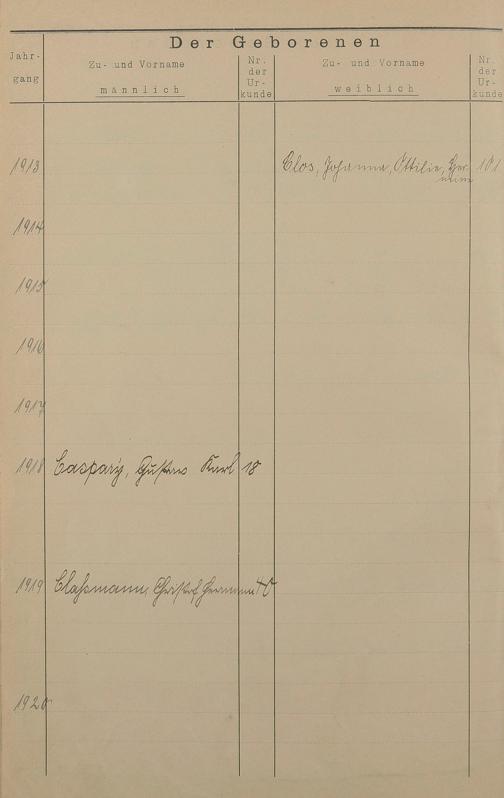 Der Geborenen
Jahr-
gang
Zu- und Vorname
männlich
Nr.
der
Ur-
kunde
Zu- und Vorname
weiblich
Nr.
der
Ur-
kunde
1913 Clos, Johanna, Ottilie, Her- 101
mine
1914
1915
1916
1917
1918 Caspary, Gustav Karl 18
1919 Claßmann, Christof Hermann
1920